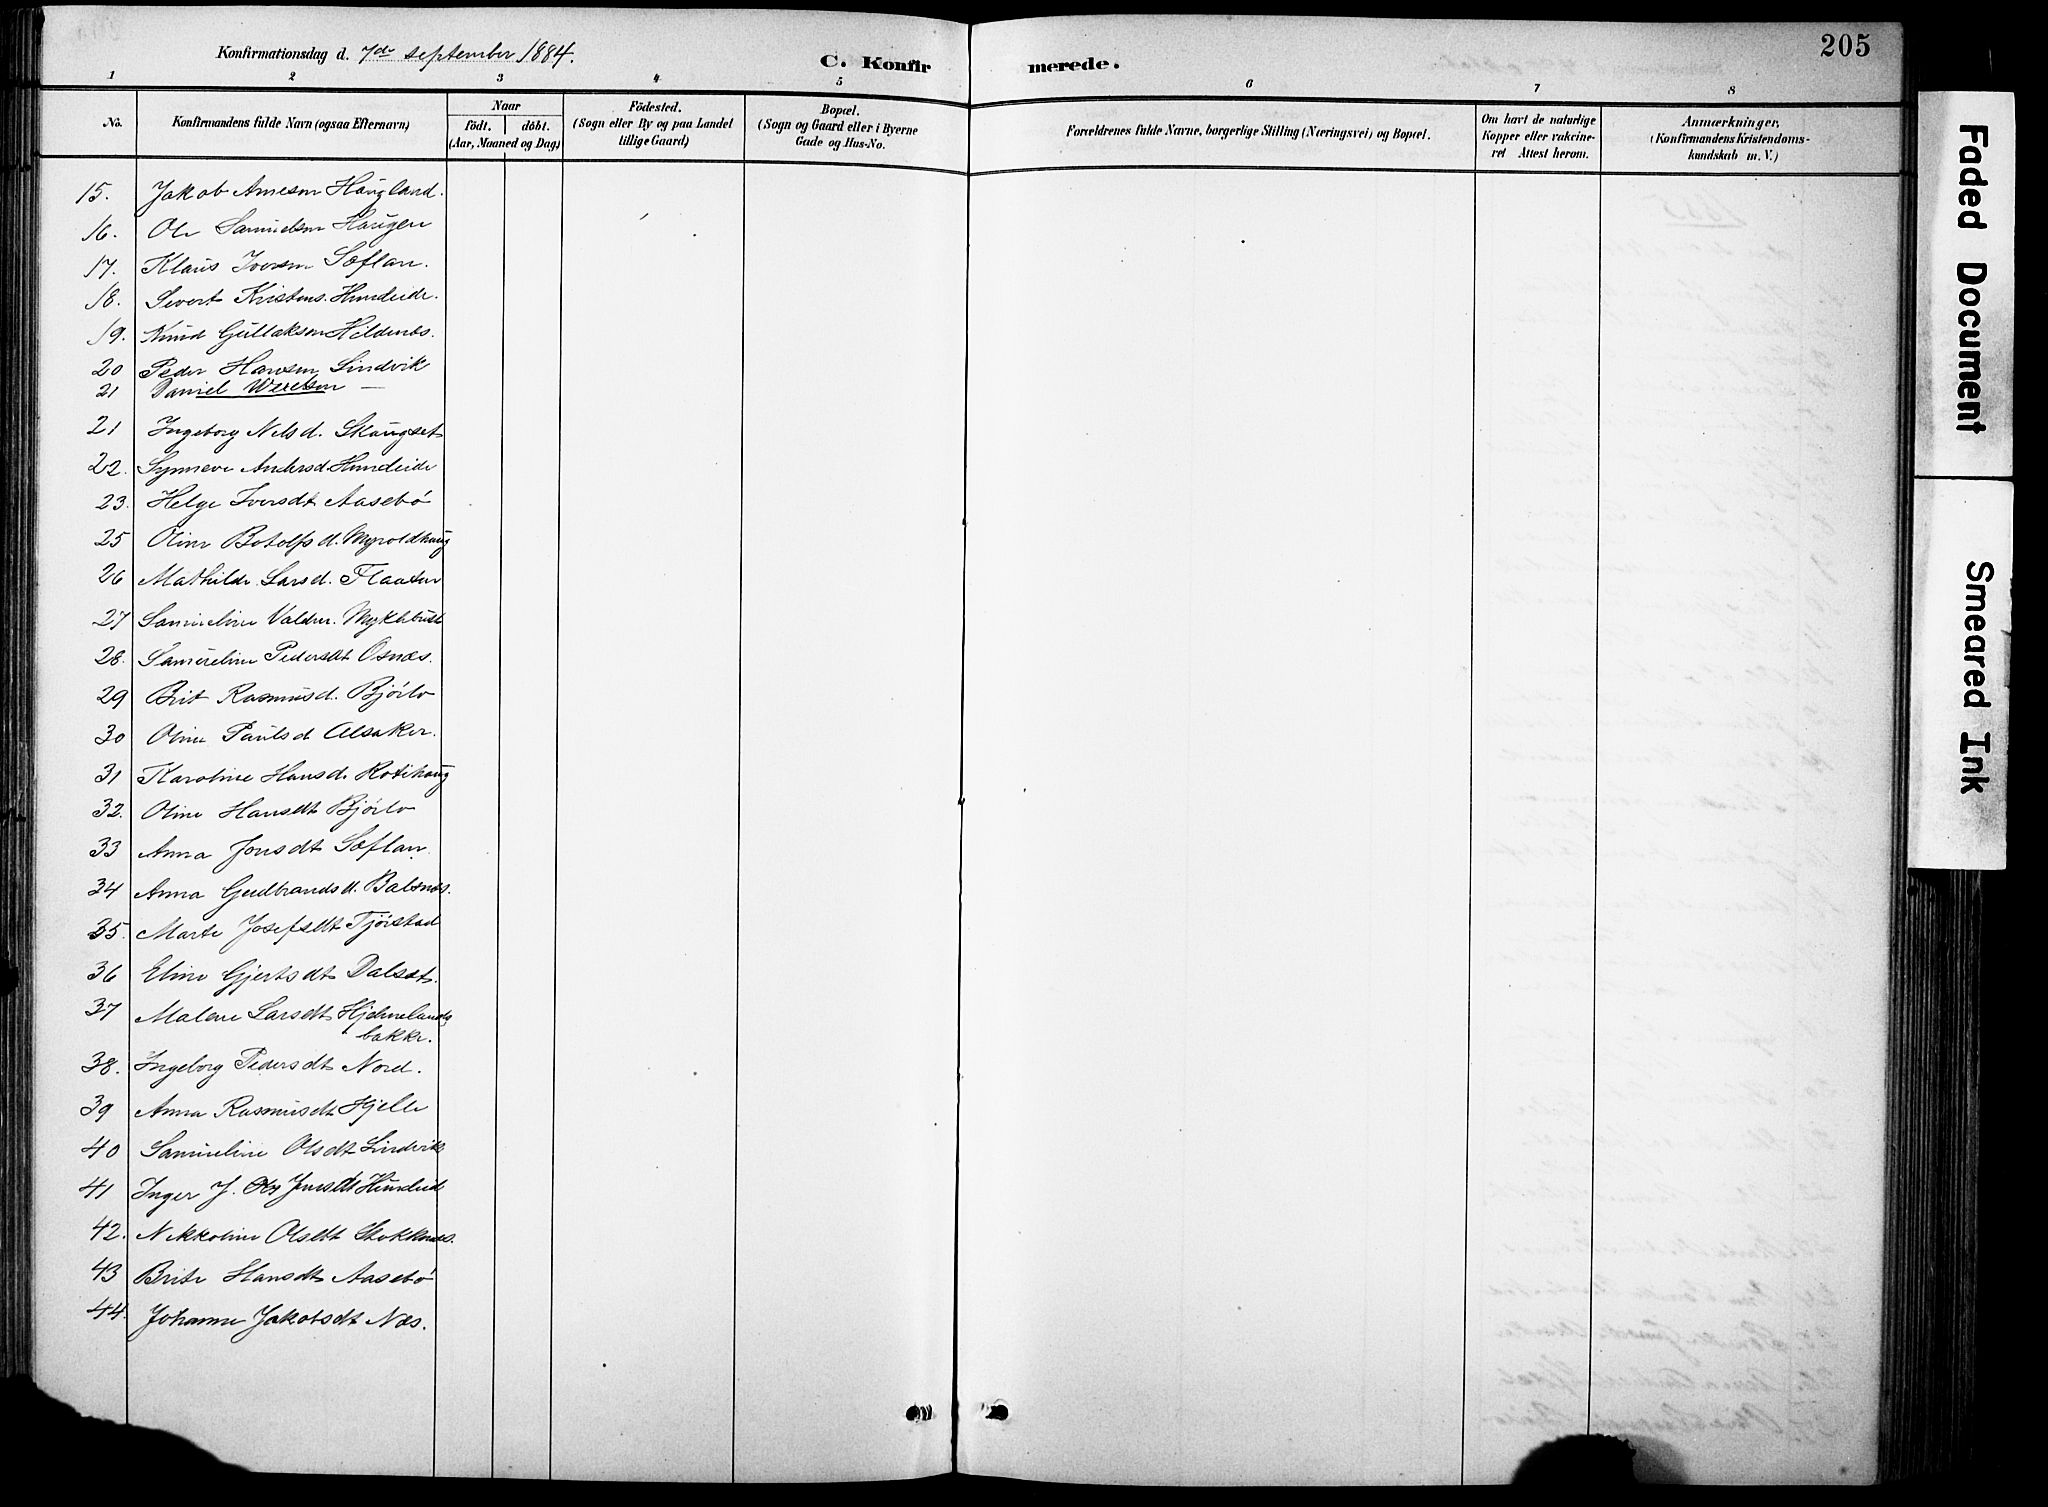 Konfirmationsdag d. 7de september 1884.
C. Konfirmerede.
205
1 2 3 4 5 6 7 8
No.
Konfirmandens fulde Navn (ogsaa Efternavn)
Naar
födt. döbt.
(Aar, Maaned og Dag)
Födested.
(Sogn eller By og paa Landet
tillige Gaard)
Bopæl.
(Sogn og Gaard eller i Byerne
Gade og Hus-No.
Forældrenes fulde Navne, borgerlige Stilling (Næringsvei) og Bopæl.
Om havt de naturlige
Kopper eller vakcine-
ret Attest herom.
Anmærkninger,
(Konfirmandens Kristendoms-
kundskab m. V.)
15. Jakob Arnesen Haugland.
16. Ole Samuelsen Haugen
17. Klaus Iversen Sæflan.
18. Sivert Kristens. Hundeide.
19. Knud Gullaksen Hildenæs.
20 Peder Hansen Lindvik
21 Daniel Werelsen —
21 Ingeborg Nelsd. Skaugset
22. Synneve Andersd. Hundeide
23. Helge Iversdt Aasebö
25 Oline Botolfsd. Myroldhaug
26 Mathilde Larsd. Flaaten
27 Samueline Valdur. Myklebust
28. Samueline Pedersdt Osnæs.
29 Brit Rasmusd. Bjórlo
30 Oline Paulsd Alsaker.
31 Karoline Hansd. Rotihaug
32. Oline Hansdt Bjórlo
33 Anna Jonsdt Sæflan.
34 Anna Gudbrandsd. Balsnæs.
35. Marte Josefsdt Tjörstad
36 Eline Gjertsdt Dalsæt.
37 Malene Larsdt Hjelmelands
bakke.
38. Ingeborg Pedersdt Nord.
39 Anna Rasmusdt Hjelle
40 Samueline Olsdt Lindvik
41 Inger J. Jonsdt Hundeid
42. Nikkoline Olsdt Stokkenæs.
43 Brite Hansdt Aasebö
44. Johanne Jakobsdt Næs.
1885
Faded Document
Smeared Ink